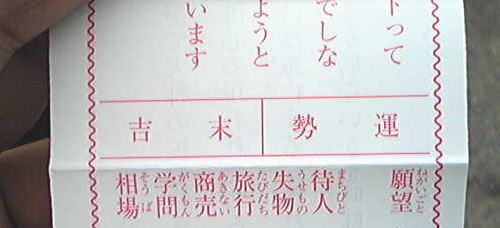 って
でしな
ようと
います
運勢
末吉
願望
ねがいごと
待人
まちびと
失物
うせもの
旅行
たびだち
商売
あきない
学問
がくもん
相場
そうば